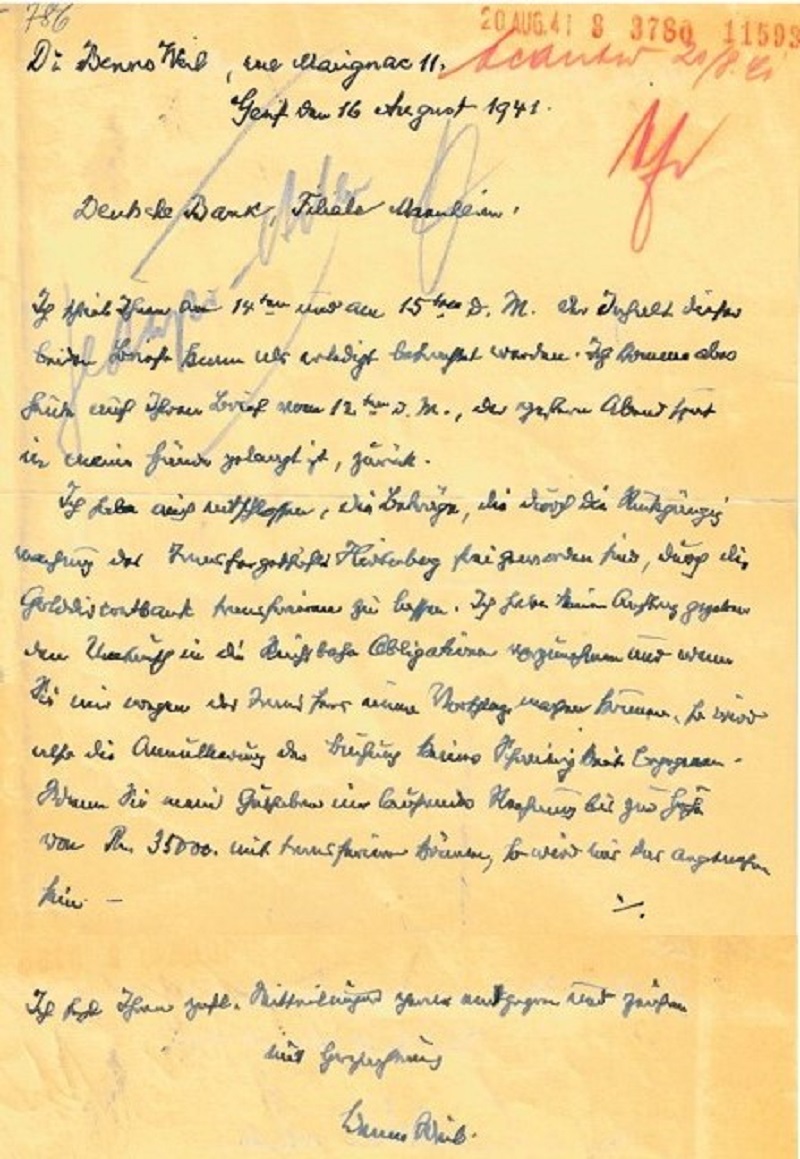 786
20 AUG. 41 8 3780 11593
Dr Benno Weil, rue Marignac 11.
Genf den 16 August 1941.
Deutsche Bank, Filiale Mannheim,
Ich schrieb Ihnen am 14ten und am 15ten d. M. Der Inhalt dieser
beiden Briefe kann als erledigt betrachtet werden. Ich komme also
heute auf Ihren Brief vom 12ten d. M., der gestern Abend spät
in meine Hände gelangt ist, zurück.
Ich habe mich entschlossen, die Beträge, die durch die Rückgängig
machung des Transfergeschäfts frei geworden sind, durch die
Golddiscontbank transferieren zu lassen. Ich habe keinen Auftrag gegeben
den Umtausch in die Reichsbahn Obligationen vorzunehmen und wenn
Sie mir wegen des Transfers einen Vorschlag machen können, so wird
also die Annullierung der Buchung keine Schwierigkeit
Wenn Sie mein Guthaben in laufender Rechnung bis zur Höhe
von Rm. 35000. mit transferieren können, so wird mir das angenehm
sein. —
./.
Ich sehe Ihren gefl. Mitteilungen gerne entgegen und zeichne
mit Hochachtung
Benno Weil.